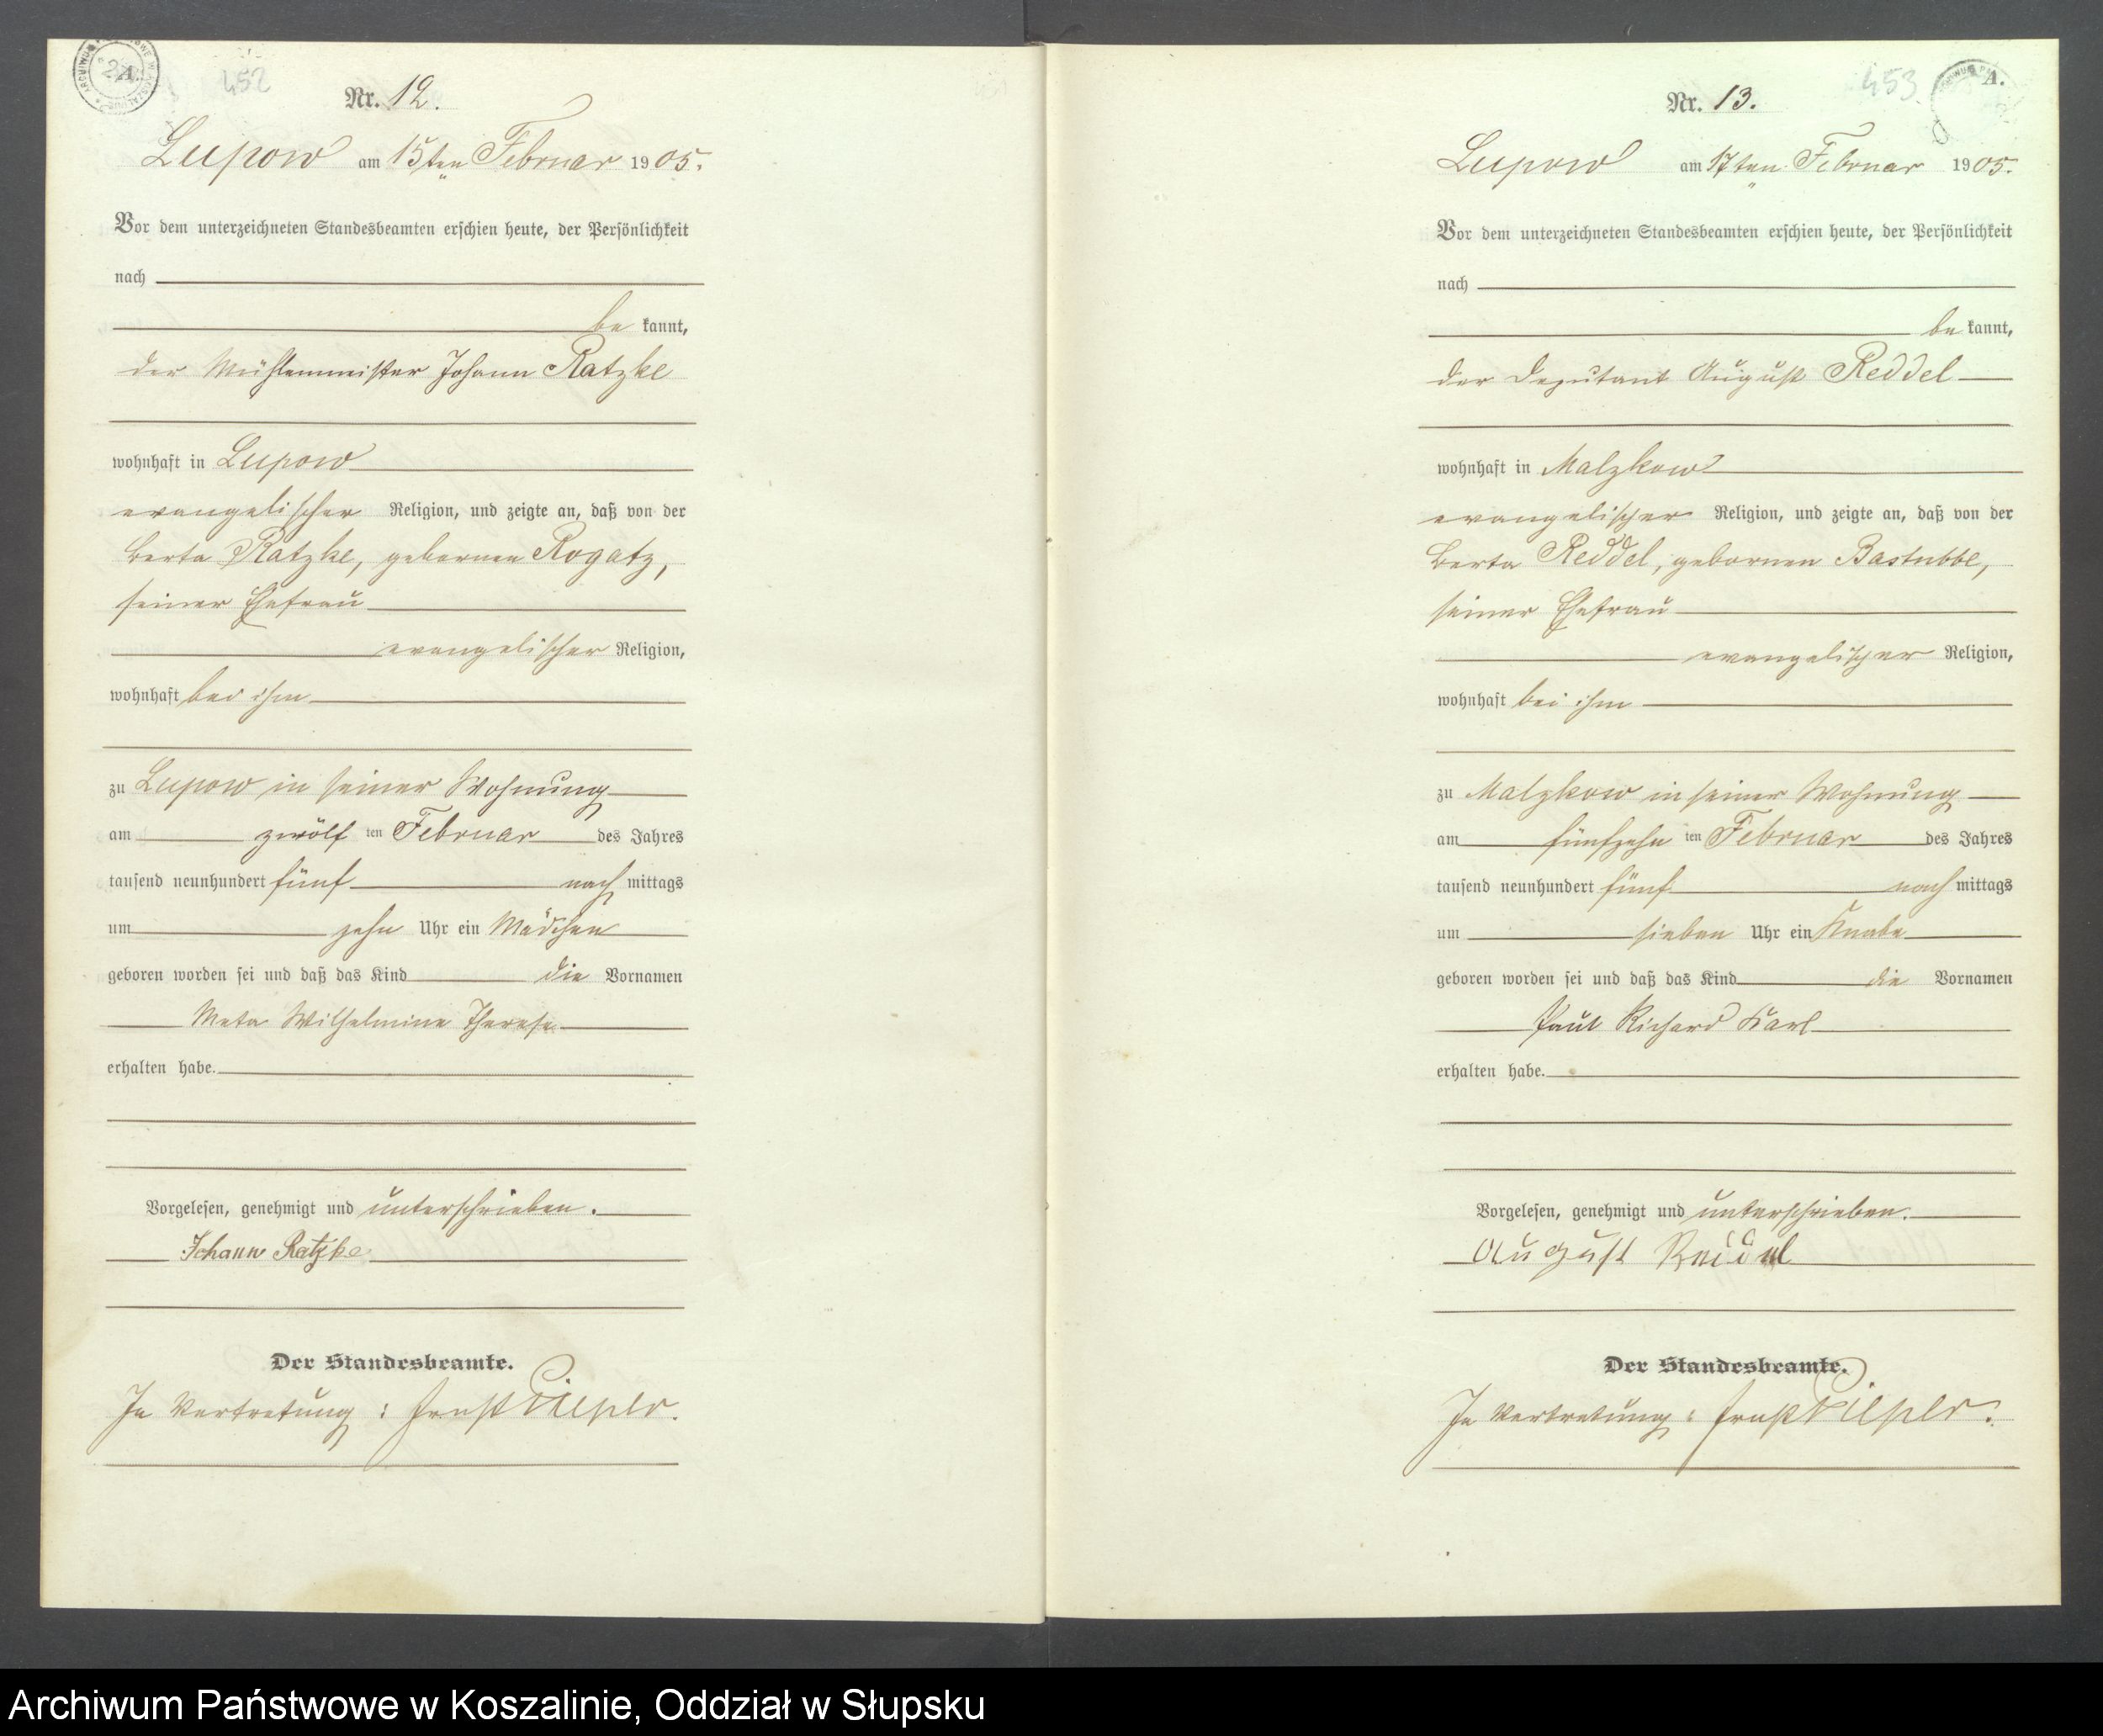 A.
452
Nr. 12.
Lupow am 15ten Februar 1905.
Vor dem unterzeichneten Standesbeamten erschien heute, der Persönlichkeit
nach
be kannt,
der Mühlenmeister Johann Ratzke
wohnhaft in Lupow
evangelischer Religion, und zeigte an, daß von der
Berta Ratzke, gebornen Rogatz,
seiner Ehefrau
evangelischer Religion,
wohnhaft bei ihm
zu Lupow in seiner Wohnung
am zwölf ten Februar des Jahres
tausend neunhundert fünf nach mittags
um zehn Uhr ein Mädchen
geboren worden sei und daß das Kind die Vornamen
Meta Wilhelmine Therese
erhalten habe.
Vorgelesen, genehmigt und unterschrieben.
Johann Ratzke
Der Standesbeamte.
In Vertretung: Ernst Pieplo.
453
A.
Nr. 13.
Lupow am 17ten Februar 1905.
Vor dem unterzeichneten Standesbeamten erschien heute, der Persönlichkeit
nach
be kannt,
der Deputant August Reddel
wohnhaft in Malzkow
evangelischer Religion, und zeigte an, daß von der
Berta Reddel, gebornen Bastubbe,
seiner Ehefrau
evangelischer Religion,
wohnhaft bei ihm
zu Malzkow in seiner Wohnung
am fünfzehn ten Februar des Jahres
tausend neunhundert fünf nach mittags
um sieben Uhr ein Knabe
geboren worden sei und daß das Kind die Vornamen
Paul Richard Karl
erhalten habe.
Vorgelesen, genehmigt und unterschrieben.
August Reddel
Der Standesbeamte.
In Vertretung: Ernst Pieplo.
Archiwum Państwowe w Koszalinie, Oddział w Słupsku